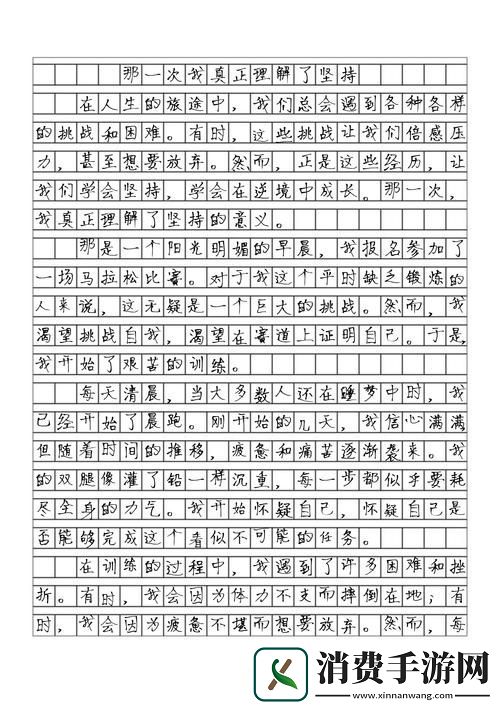 那一次我真正理解了坚持
在人生的旅途中，我们总会遇到各种各样
的挑战和困难。有时，这些挑战让我们倍感压
力，甚至想要放弃。然而，正是这些经历，让
我们学会坚持，学会在逆境中成长。那一次，
我真正理解了坚持的意义。
那是一个阳光明媚的早晨，我报名参加了
一场马拉松比赛。对于我这个平时缺乏锻炼的
人来说，这无疑是一个巨大的挑战。然而，我
渴望挑战自我，渴望在赛道上证明自己。于是，
我开始了艰苦的训练。
每天清晨，当大多数人还在睡梦中时，我
已经开始了晨跑。刚开始的几天，我信心满满，
但随着时间的推移，疲惫和痛苦逐渐袭来。我
的双腿像灌了铅一样沉重，每一步都似乎要耗
尽全身的力气。我开始怀疑自己，怀疑自己是
否能够完成这个看似不可能的任务。
在训练的过程中，我遇到了许多困难和挫
折。有时，我会因为体力不支而摔倒在地；有
时，我会因为疲惫不堪而想要放弃。然而，每
消费手游网
www.xinnanwang.com